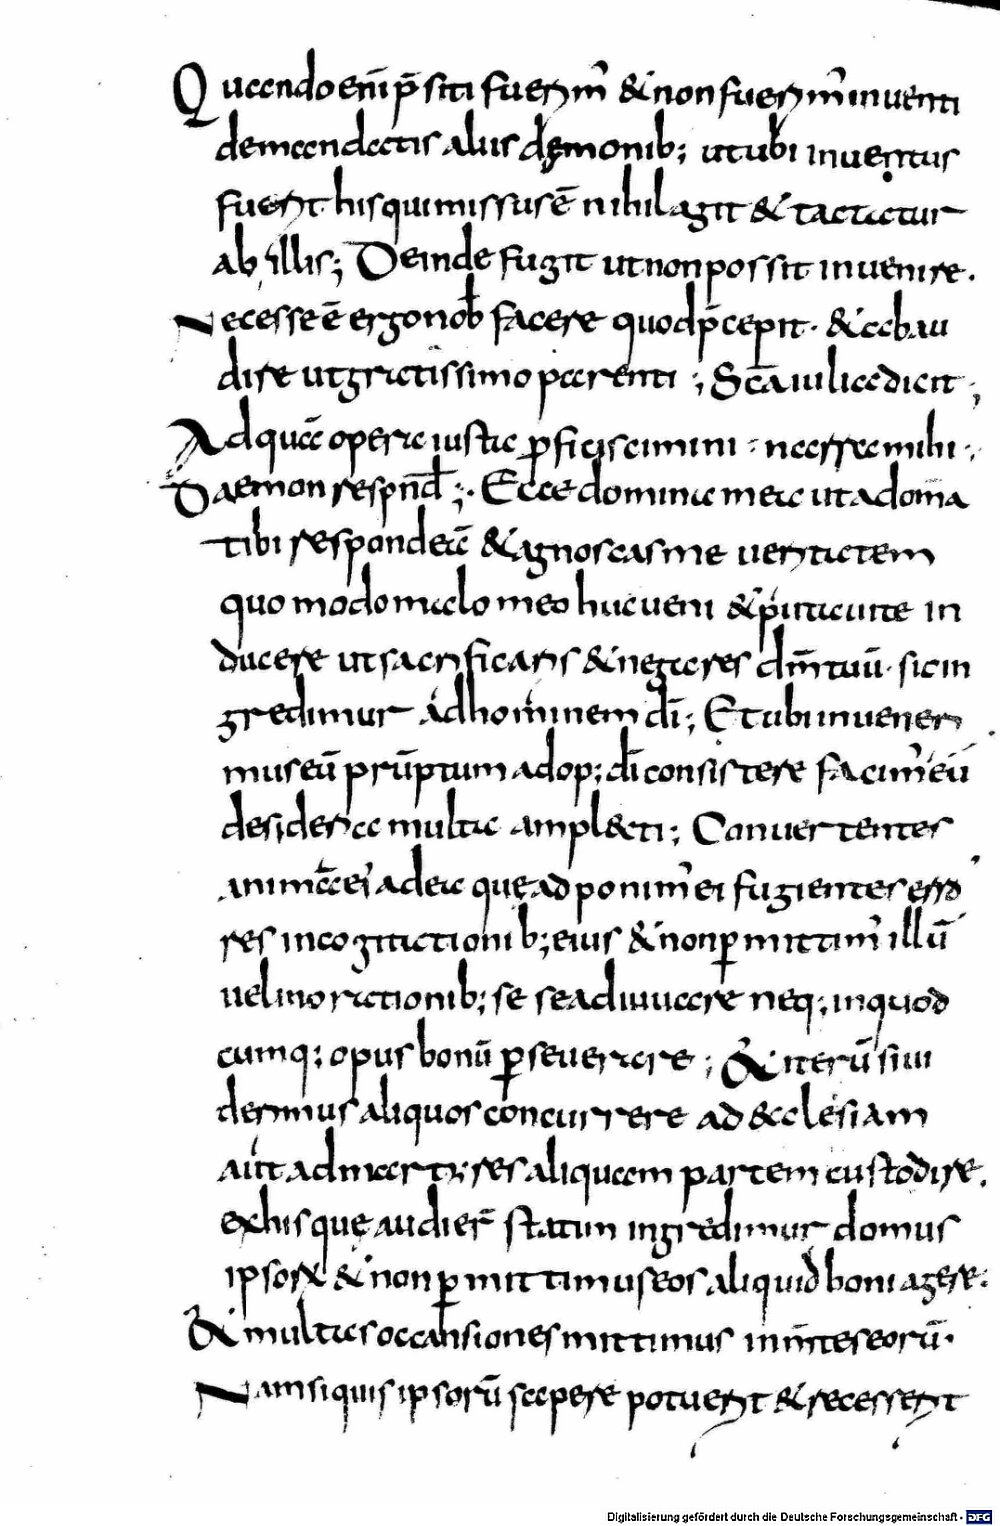 Quando enī p̄siti fuerim' & non fuerim' inuenti
demandatis aliis demonib; ut ubi inuentus
fuerit his qui missus ē nihil agit & tactatur
ab illis; Deinde fugit ut non possit inuenire.
Necesse ē ergo nob facere quod p̄cepit. & obau
dire ut gratissimo parenti; Scā iuliae dicit;
Ad quā opera iusta proficiscimini. narra mihi.
Daemon respnd; Ecce domina mea ut ad omā
tibi respondeā & agnoscas me ueritatem
quo modo malo meo huc ueni & putaui te in
ducere ut sacrificaris & negares dm̄ tuū. sic in
gredimur ad hominem dī; Et ubi inueneri
mus eū prūptum ad op; dī consistere facim' eū
desidera multa ampl&ti; Conuertentes
animā ei' ad ea quę adponim' ei fugientes erro
res in cogitationib; eius & non permittim' illū
uel in orationib; se seadiuuare neq; in quod
cumq; opus bonū perseuerare; & iterū si ui
derimus aliquos concurrere ad &clesiam
aut ad martyres aliquam partem custodire.
ex his quę audier̄ statim ingredimur domus
ipsorum & non permittimus eos aliquid boni agere.
& multas occansiones mittimus in m̄tes eorū.
Nam si quis ipsorū sapere potuerit & recesserit
Digitalisierung gefördert durch die Deutsche Forschungsgemeinschaft - DFG